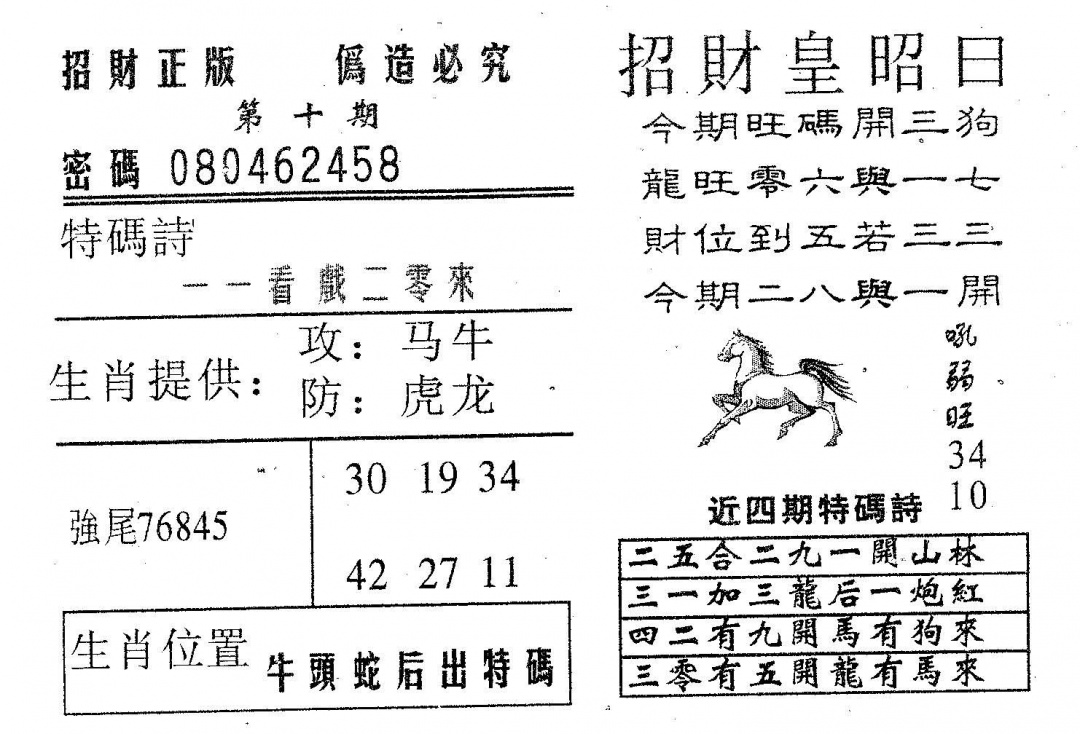 招財正版 僞造必究
第十期
密碼 080462458
特碼詩
一一看戲二零來
生肖提供：
攻：马牛
防：虎龙
強尾76845
30 19 34
42 27 11
生肖位置
牛頭蛇后出特碼
招財皇昭日
今期旺碼開三狗
龍旺零六與一七
財位到五若三三
今期二八與一開
吼
弱
旺
34
10
近四期特碼詩
二五合二九一開山林
三一加三龍后一炮紅
四二有九開馬有狗來
三零有五開龍有馬來